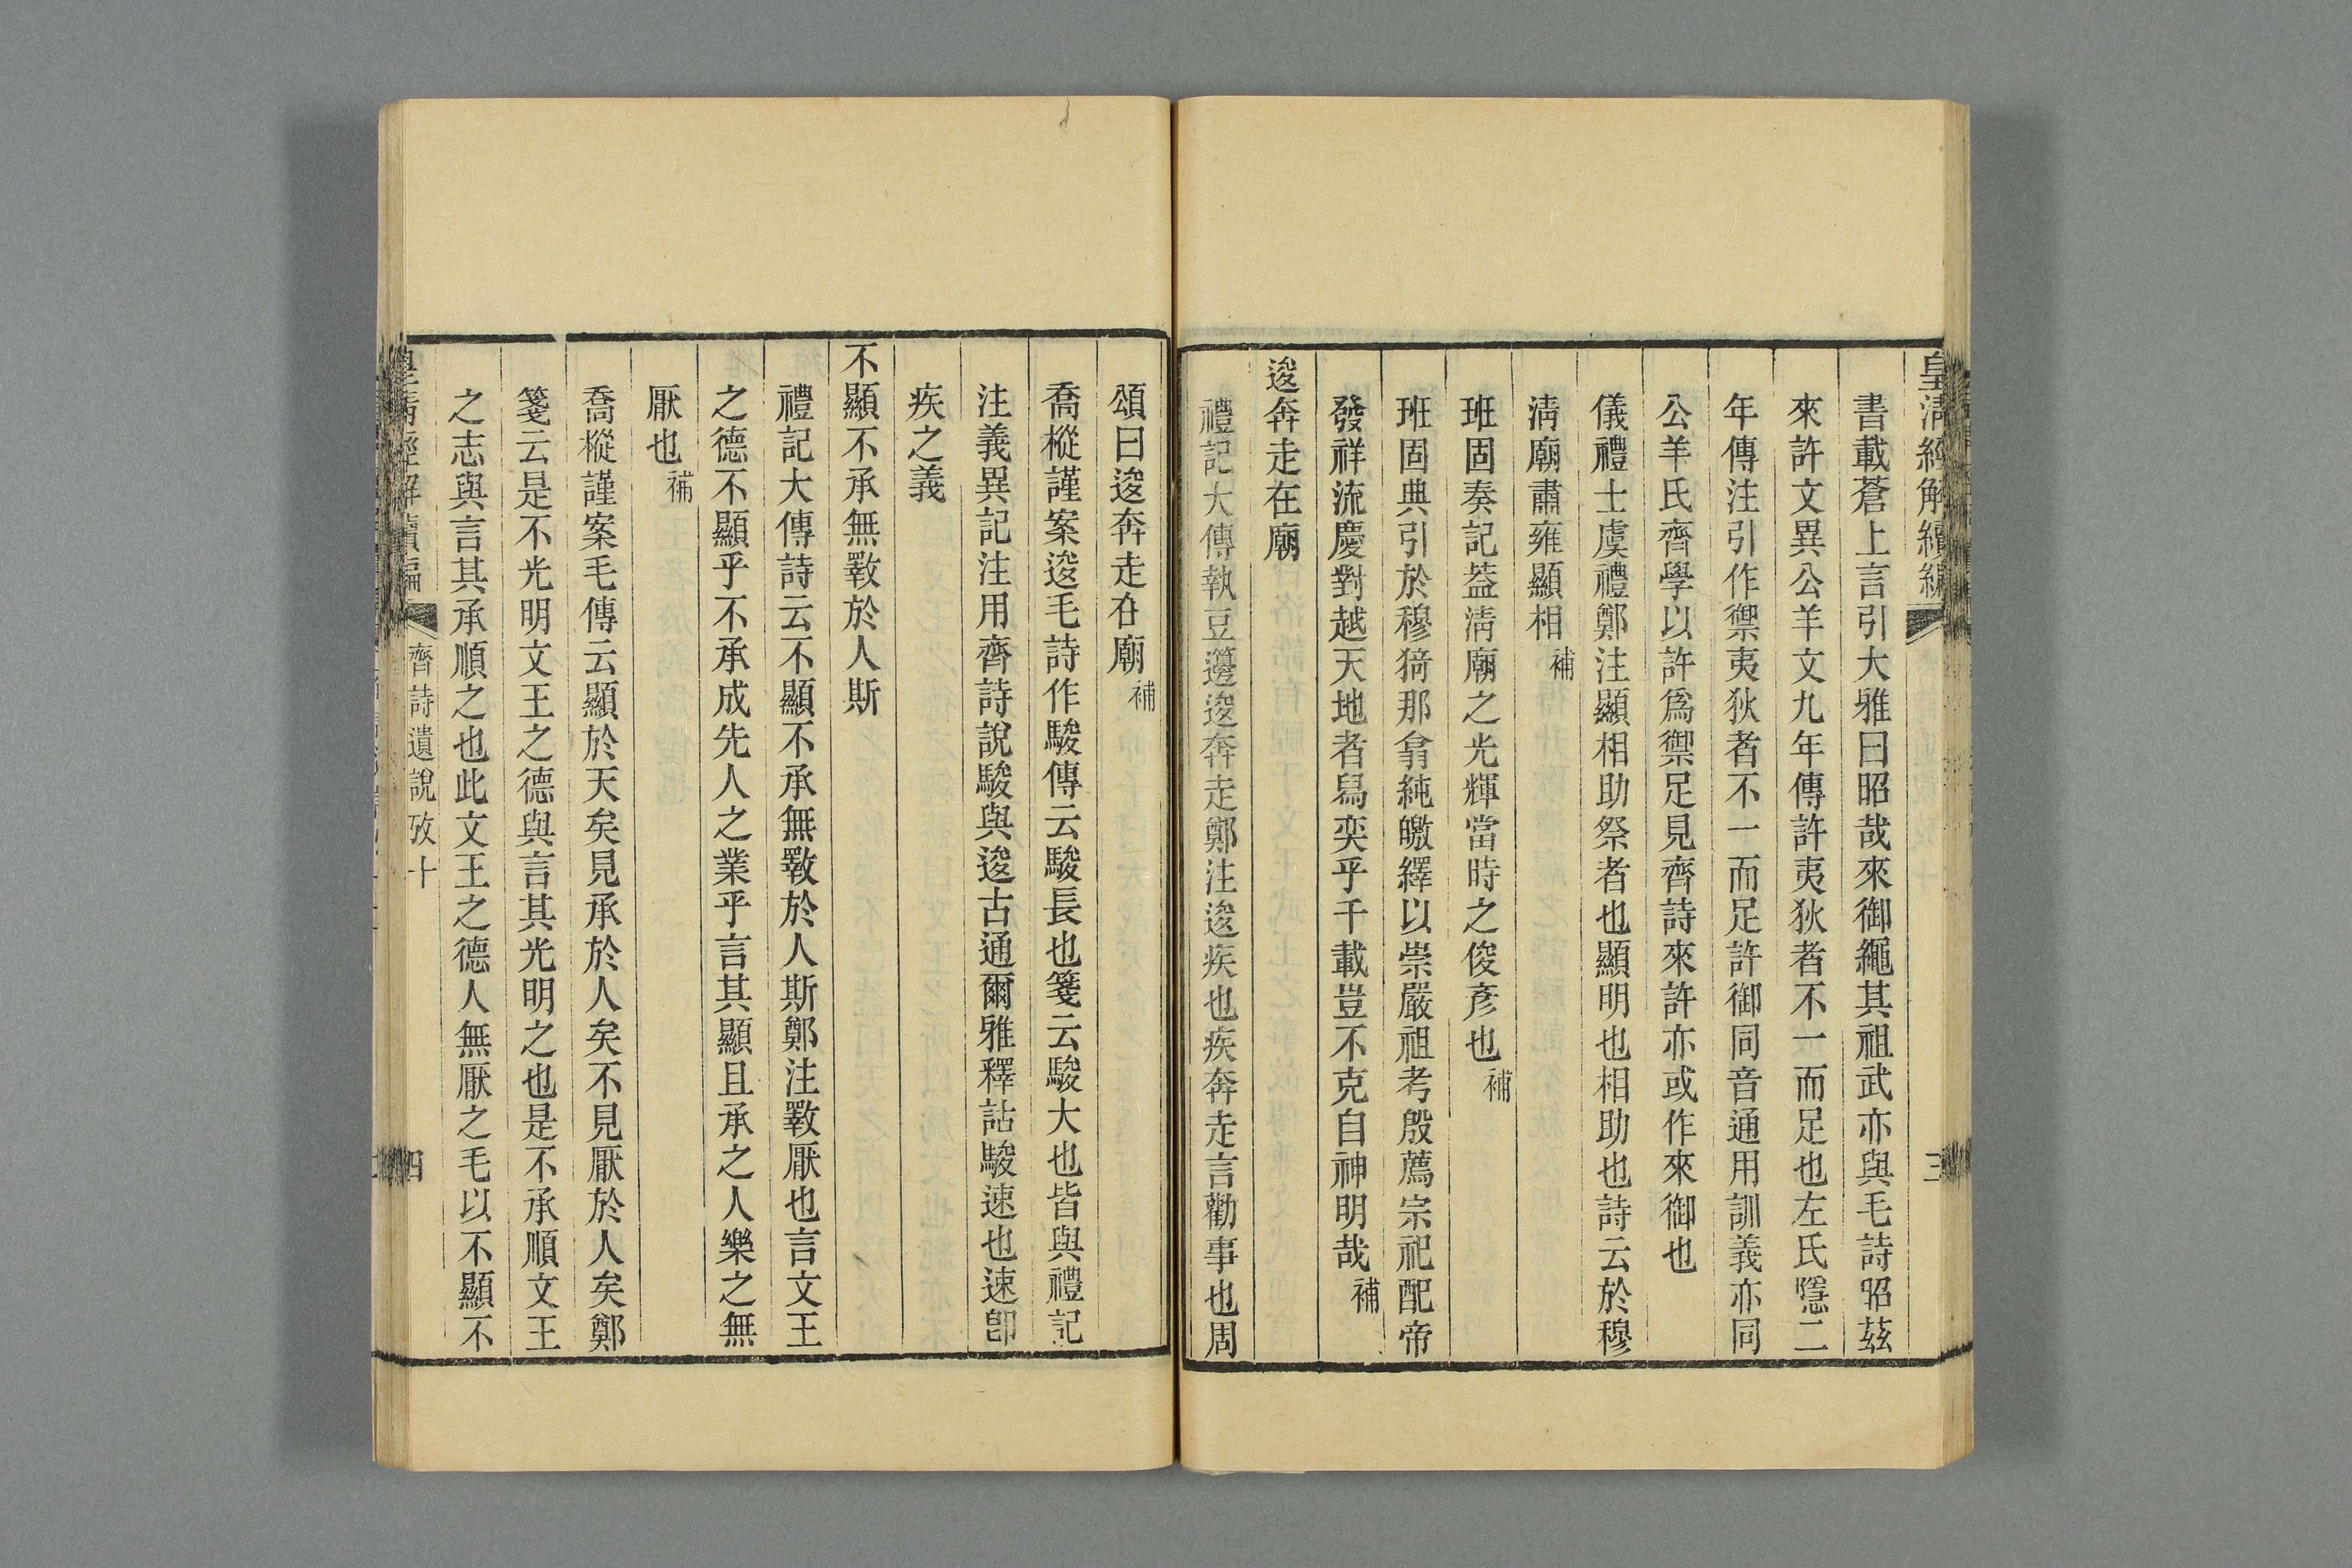 皇清經解續編
三
書載蒼上言引大雅曰昭哉來御繩其祖武亦與毛詩昭茲
來許文異公羊文九年傳許夷狄者不一而足也左氏隱二
年傳注引作禦夷狄者不一而足許御同音通用訓義亦同
公羊氏齊學以許爲禦足見齊詩來許亦或作來御也
儀禮士虞禮鄭注顯相助祭者也顯明也相助也詩云於穆
淸廟肅雍顯相補
班固奏記葢淸廟之光輝當時之俊彥也補
班固典引於穆猗那翕純皦繹以崇嚴祖考殷薦宗祀配帝
發祥流慶對越天地者舄奕乎千載豈不克自神明哉補
逡奔走在廟
禮記大傳執豆籩逡奔走鄭注逡疾也疾奔走言勸事也周
頌曰逡奔走在廟補
喬樅謹案逡毛詩作駿傳云駿長也箋云駿大也皆與禮記
注義異記注用齊詩說駿與逡古通爾雅釋詁駿速也速卽
疾之義
不顯不承無斁於人斯
禮記大傳詩云不顯不承無斁於人斯鄭注斁厭也言文王
之德不顯乎不承成先人之業乎言其顯且承之人樂之無
厭也補
喬樅謹案毛傳云顯於天矣見承於人矣不見厭於人矣鄭
箋云是不光明文王之德與言其光明之也是不承順文王
之志與言其承順之也此文王之德人無厭之毛以不顯不
皇淸經解續編
齊詩遺說攷十
四